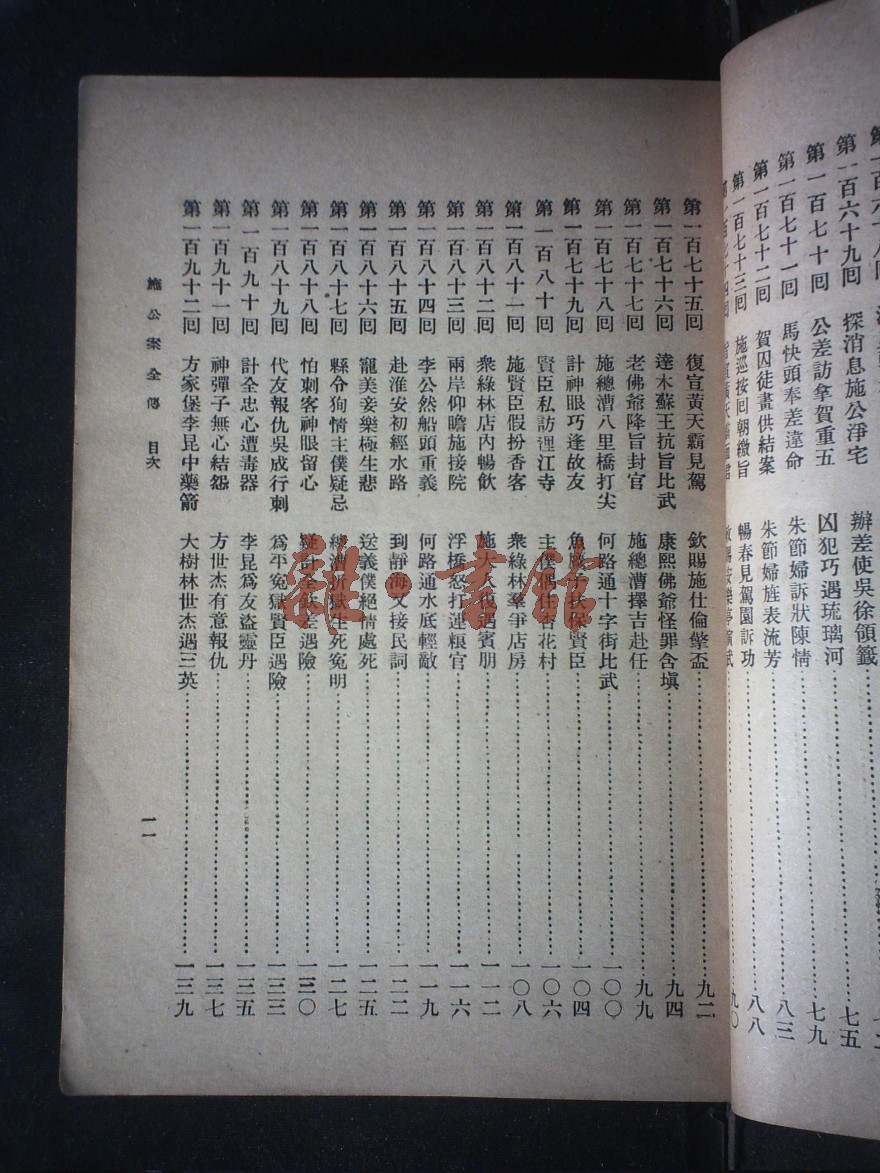 探消息施公淨宅
第一百七十回 公差訪拿賀重五 凶犯巧遇琉璃河 七九
第一百七十一回 馬快頭奉差違命 朱節婦訴狀陳情 八三
第一百七十二回 賀囚徒畫供結案 朱節婦旌表流芳 八八
第一百七十三回 施巡按回朝繳旨 暢春見駕園訴功 九〇
第一百七十五回 復宣黃天霸見駕 欽賜施仕倫擎盃 九二
第一百七十六回 達木蘇王抗旨比武 康熙佛爺怪罪含嗔 九四
第一百七十七回 老佛爺降旨封官 施總漕擇吉赴任 九九
施總漕八里橋打尖 何路通十字街比武 一〇〇
第一百七十九回 計神眼巧逢故友 魚鷹子扶保賢臣 一〇四
第一百八十回 賢臣私訪浬江寺 主僕偶住杏花村 一〇六
第一百八十一回 施賢臣假扮香客 衆綠林羣爭店房 一〇八
第一百八十二回 衆綠林店內暢飲 施大人夜遇賓朋 一一二
第一百八十三回 兩岸仰瞻施按院 浮橋怒打運糧官 一一六
第一百八十四回 李公然船頭重義 何路通水底輕敵 一一九
第一百八十五回 赴淮安初經水路 到靜海又接民詞 一二二
第一百八十六回 寵美妾樂極生悲 送義僕絕情處死 一二五
第一百八十七回 縣令狥情主僕疑忌 總漕折獄生死冤明 一二七
第一百八十八回 怕刺客神眼留心 疑計全欽差遇險 一三〇
第一百八十九回 代友報仇吳成行刺 爲平冤獄賢臣遇險 一三三
第一百九十回 計全忠心遭毒器 李昆爲友盜靈丹 一三五
第一百九十一回 神彈子無心結怨 方世杰有意報仇 一三七
第一百九十二回 方家堡李昆中藥箭 大樹林世杰遇三英 一三九
施公案全傳 目次
一一
雜·書館